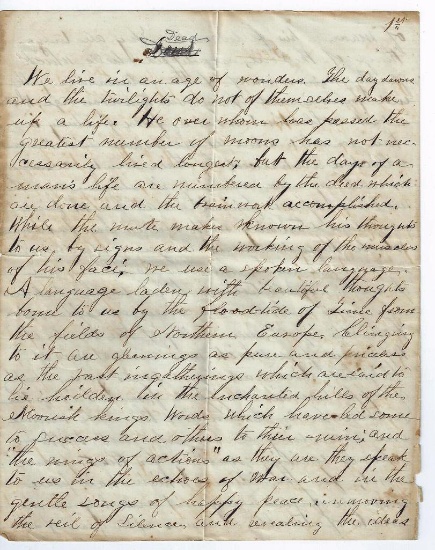 1st
Deed
We live in an age of wonders. The day dawns
and the twilights do not of themselves make
up a life. He over whom has passed the
greatest number of moons has not nec-
cessarily lived longest, but the days of a
man's life are numbered by the deed which
are done and the brainwork accomplished.
While the mute makes known his thoughts
to us, by signs and the working of the muscles
of his face, we use a spoken language.
A language laden with beautiful thoughts
borne to us by the floodtide of Time from
the fields of Northern Europe. Clinging
to it are gemings as pure and
as the past which are said to
lie hidden in the Enchanted hills of the
Moorish kings. Words which have led some
to success and others to their ruin, and
"the wings of actions" as they are they speak
to us in the echoes of War and in the
gentle songs of happy peace, removing
the veil of Silence, and revealing the ideas